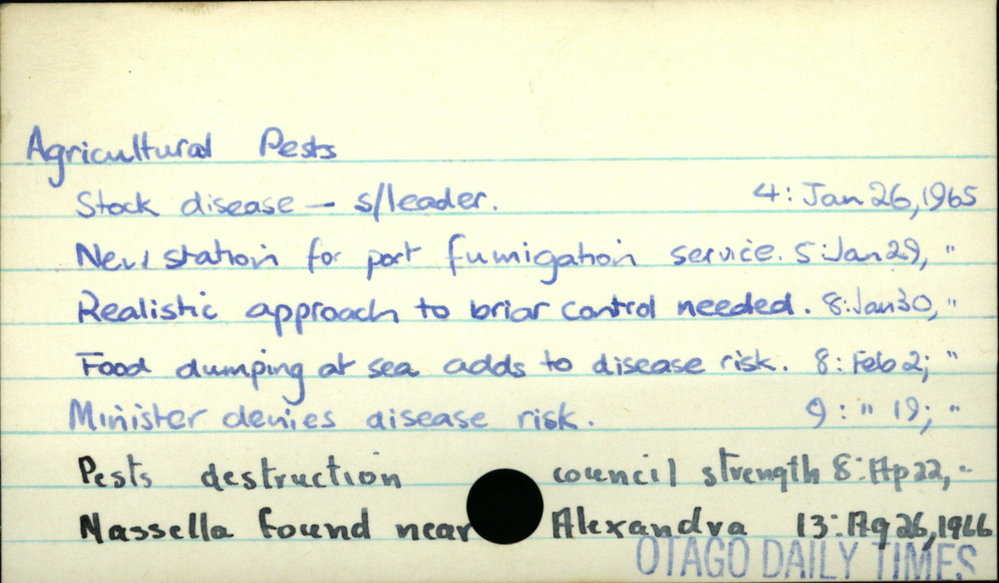 Agricultural Pests
Stock disease — s/leader. 4: Jan 26, 1965
New station for port fumigation service. 5: Jan 29, "
Realistic approach to briar control needed. 8: Jan 30, "
Food dumping at sea adds to disease risk. 8: Feb 2; "
Minister denies disease risk. 9: " 19; "
Pests destruction council strength 8: Ap 22, "
Nassella found near Alexandra 13: Ag 26, 1966
OTAGO DAILY TIMES